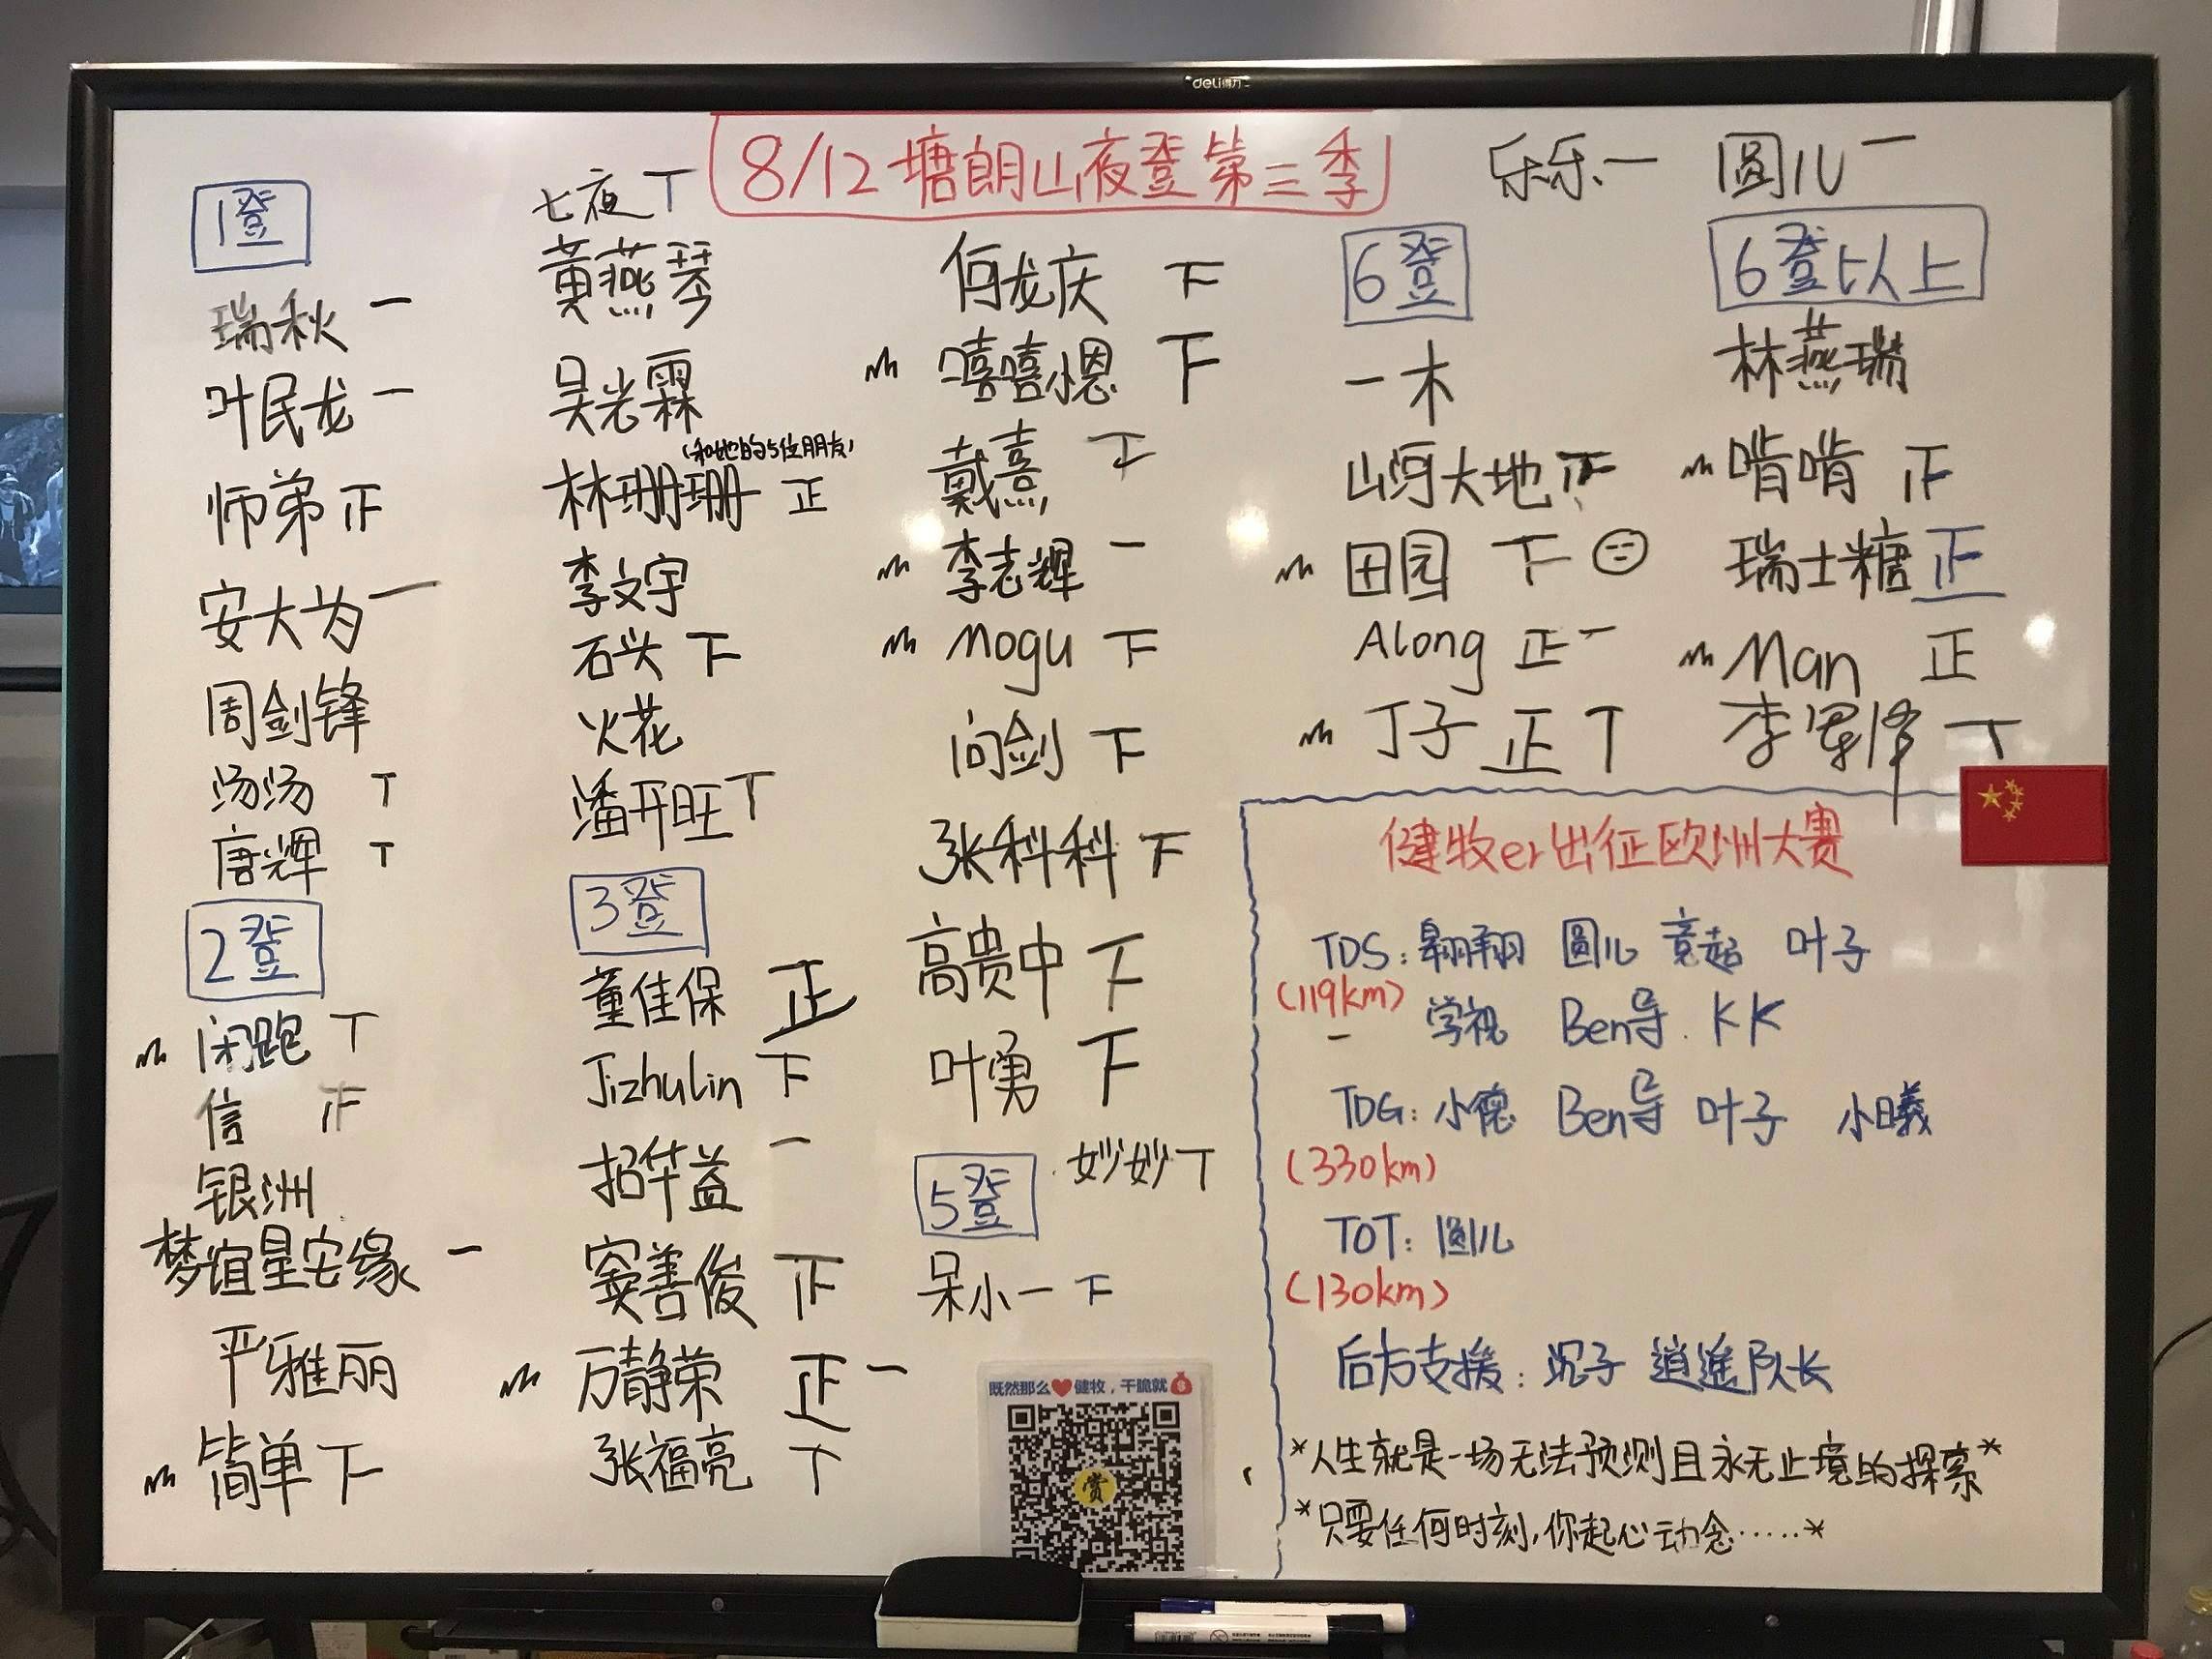 deli得力
8/12 塘朗山夜登第三季
乐乐 一
圆儿 一
1登
瑞秋 一
叶民龙 一
师弟 正
安大为 一
周剑锋
汤汤 T
唐辉 T
2登
闲跑 T
信 正
银洲
梦谊星宅缘 一
严雅丽
简单 下
七夜 T
黄燕琴
吴光霖
(和她的5位朋友)
林珊珊 正
李文宇
石头 下
火花
潘开旺 T
3登
童佳保 正
Jizhulin 下
招华益 一
窦善俊 正
万静荣 正一
张福亮 T
何龙庆 下
嘻嘻小恩 下
戴熹
李志辉 一
Mogu 下
问剑 下
张科科 下
高贵中 下
叶勇 下
5登
妙妙 T
呆小一 下
6登
一木
山河大地 正
田园 下
Along 正一
丁子 正T
6登以上
林燕瑞
啃啃 正
瑞士糖 正
Man 正
李军锋 T
健牧er出征欧洲大赛
TDS: 翱翔 圆儿 竞起 叶子
(119km)
学视 Ben导 KK
TDG: 小德 Ben导 叶子 小曦
(330km)
TOT: 圆儿
(130km)
后方支援: 沉子 逍遥队长
*人生就是一场无法预测且永无止境的探索*
*只要任何时刻,你起心动念……*
既然那么❤健牧，干脆就
赏